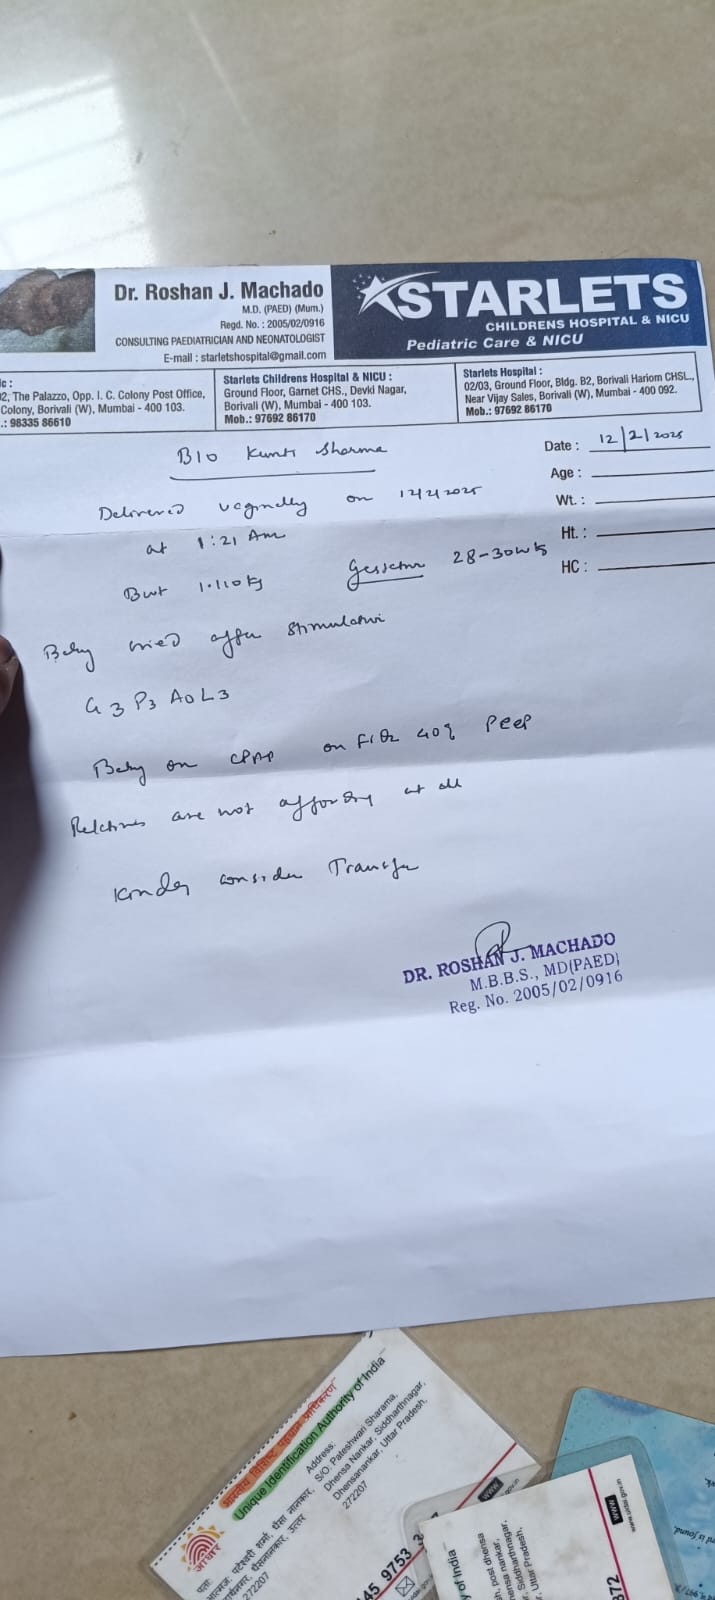 Dr. Roshan J. Machado
M.D. (PAED) (Mum.)
Regd. No. : 2005/02/0916
CONSULTING PAEDIATRICIAN AND NEONATOLOGIST
E-mail : starletshospital@gmail.com
STARLETS
CHILDRENS HOSPITAL & NICU
Pediatric Care & NICU
ic :
02, The Palazzo, Opp. I. C. Colony Post Office,
Colony, Borivali (W), Mumbai - 400 103.
.: 98335 86610
Starlets Childrens Hospital & NICU :
Ground Floor, Garnet CHS., Devki Nagar,
Borivali (W), Mumbai - 400 103.
Mob.: 97692 86170
Starlets Hospital :
02/03, Ground Floor, Bldg. B2, Borivali Hariom CHSL.,
Near Vijay Sales, Borivali (W), Mumbai - 400 092.
Mob.: 97692 86170
Date : 12/2/2025
Age :
Wt. :
Ht. :
HC :
B/o Kunti Sharma
Delivered vaginally on 12/2/2025
at 1:21 Am
Bwt 1.110 kg Gestation 28-30wks
Baby cried after stimulation
G3 P3 A0 L3
Baby on CPAP on FiO2 40% PEEP
Relatives are not affording at all
Kindly consider Transfer
DR. ROSHAN J. MACHADO
M.B.B.S., MD(PAED)
Reg. No. 2005/02/0916
भारतीय विशिष्ट पहचान प्राधिकरण
Unique Identification Authority of India
आधार
Address:
S/O: Pateshwari Sharama,
Dhensa Nankar, Siddharthnagar,
Dhensanankar, Uttar Pradesh,
272207
पता:
आत्मज: पटेश्वरी शर्मा, धेंसा नानकार,
272207
45 9753
www
of India
post dhensa
Siddharthnagar,
Uttar Pradesh,
www
www.uidai.gov.in
372